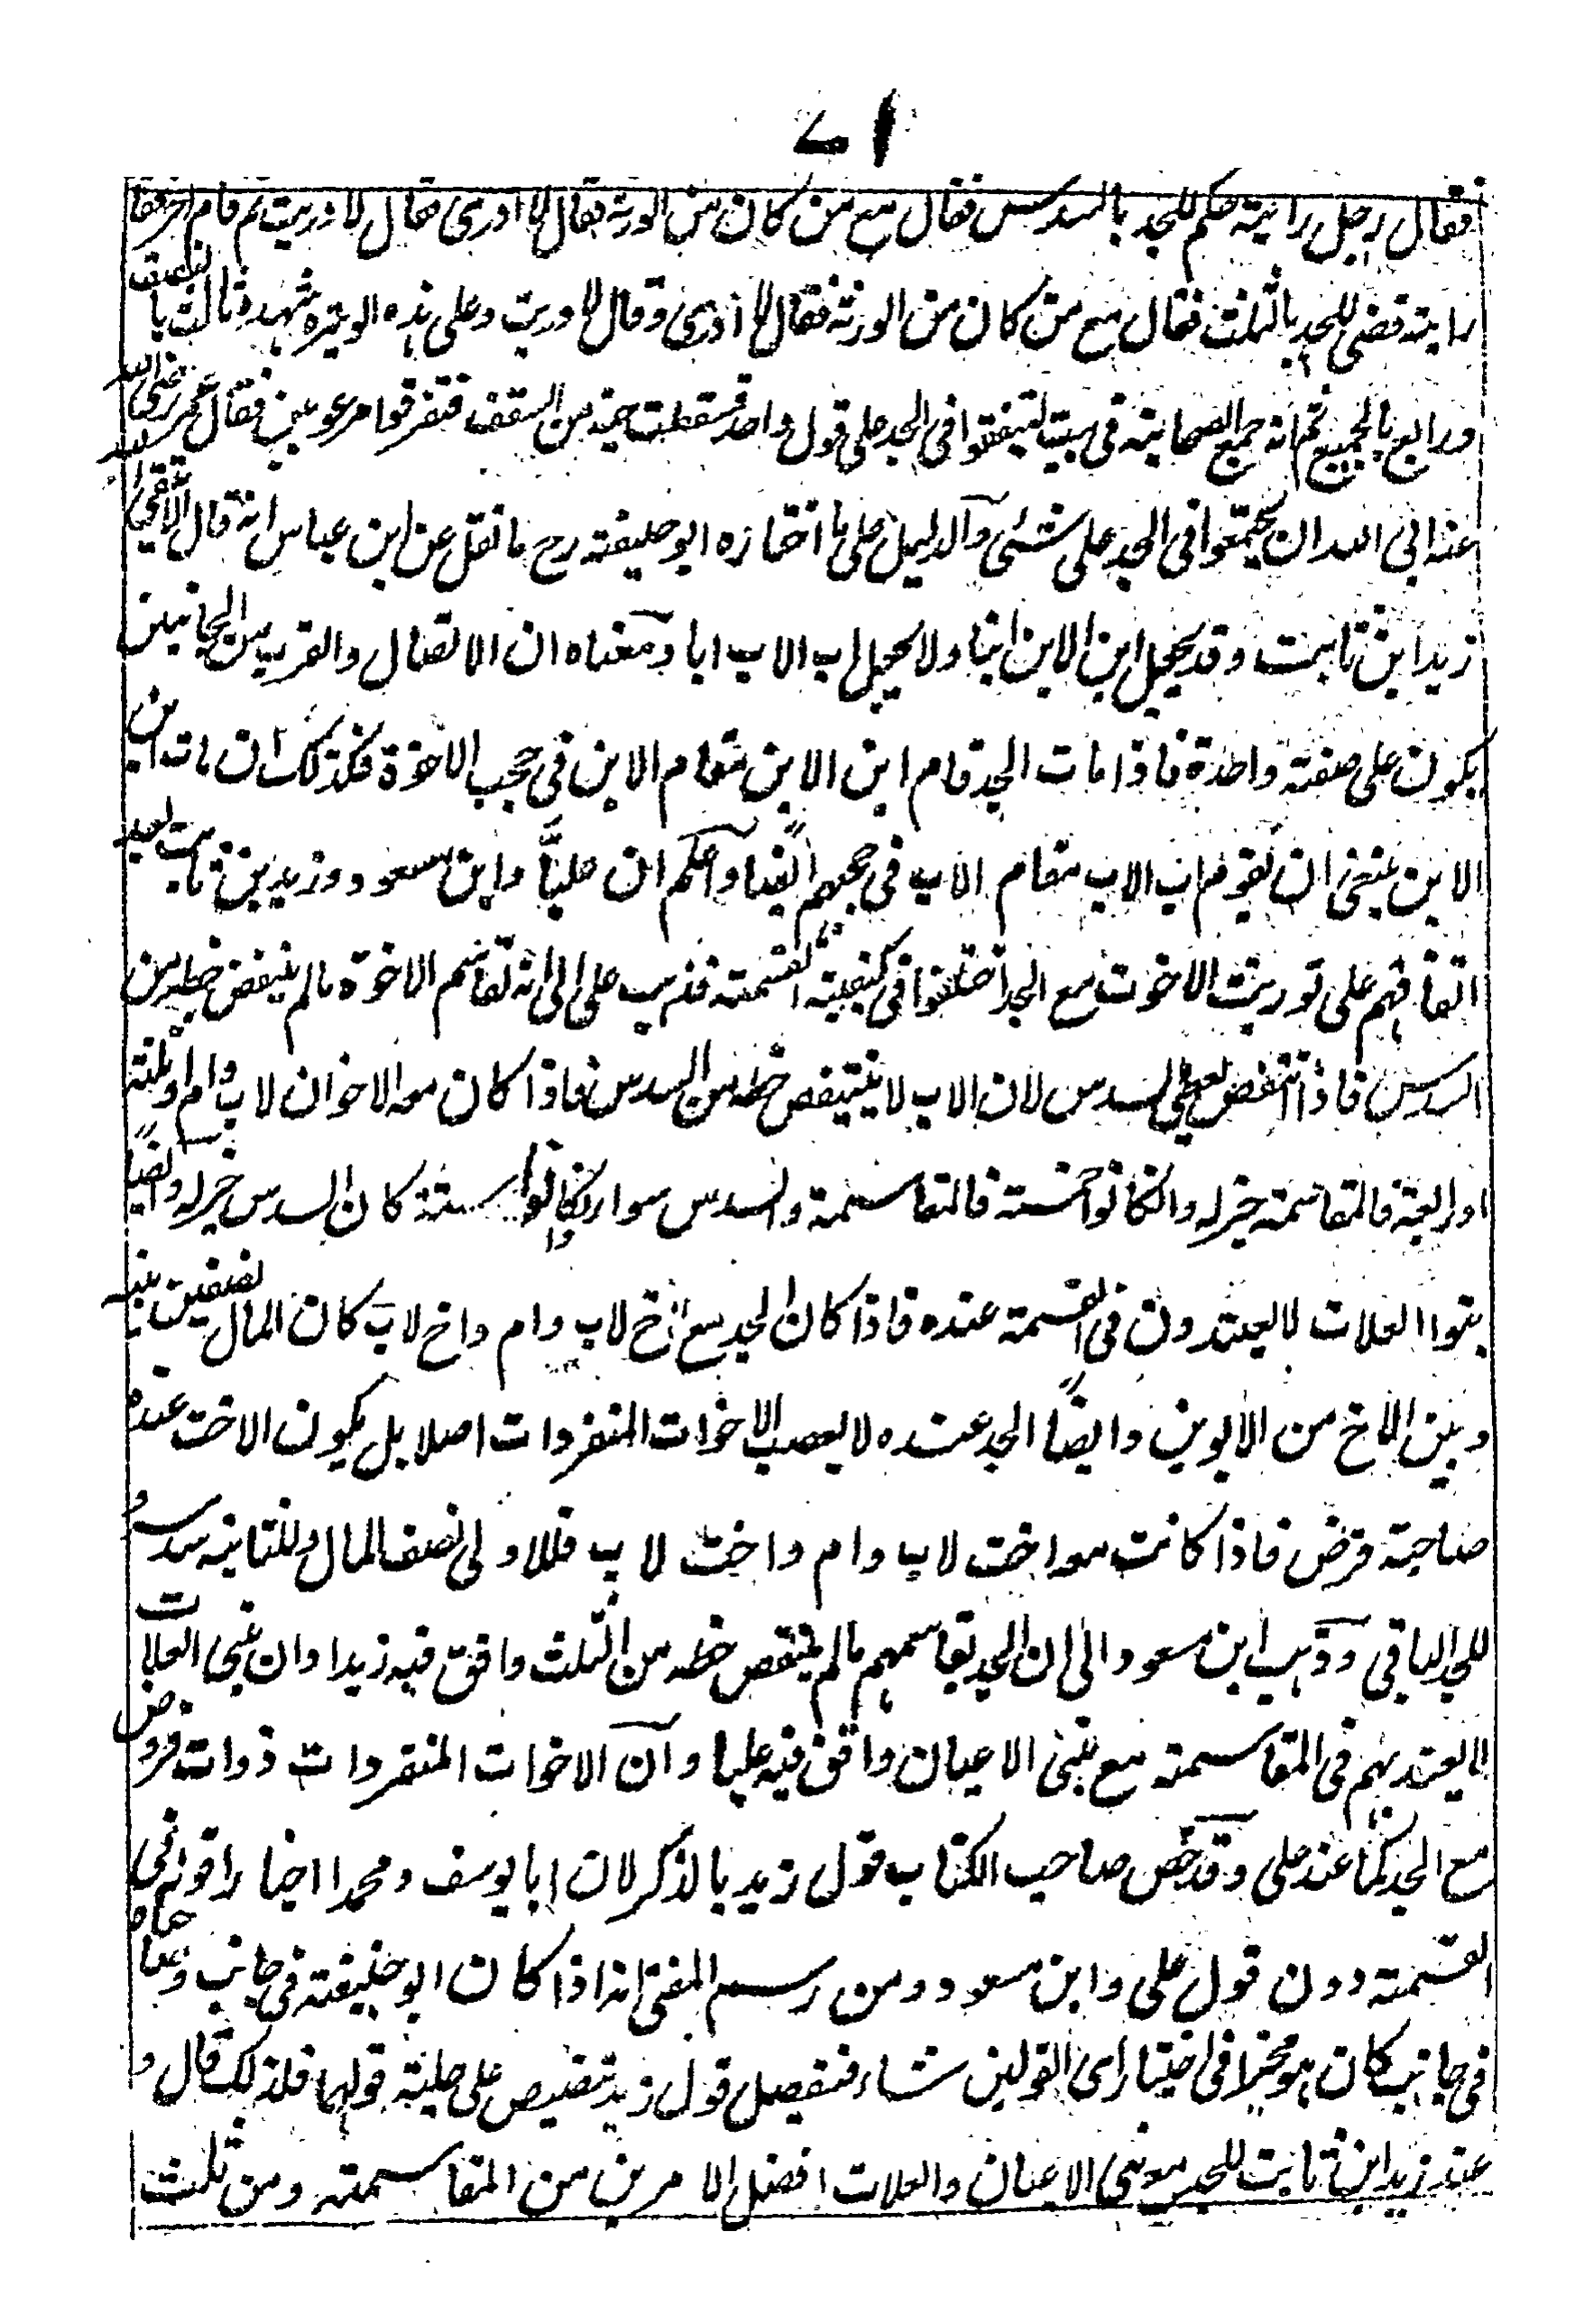 ۷۱
فقال رجل رايته حكم للجد بالسدس فقال مع من كان من الورثة فقال لا ادرى فقال لا دريت ثم قام اخر فقا
رايته قضى للجد بالثلث فقال مع من كان من الورثة فقال لا ادرى وقال لا دريت وعلى هذه الوتيرة شهد ثالث بالنصف
ورابع بالجميع ثم انه جمع الصحابة فى بيت ليتفقوا فى الجد على قول واحد فسقطت حية من السقف فتفرقوا مرعوبين فقال عمر رضى الله
عنه ابى الله ان يجتمعوا فى الجد على شئى والدليل على ما اختاره ابو حنيفة رح ما نقل عن ابن عباس انه قال الا يتقى الله
زيد ابن ثابت وقد يجعل ابن الابن ابنا ولا يجعل اب الاب ابا ومعناه ان الاتصال والقرب من الجانبين
يكون على صفة واحدة فاذا مات الجد قام ابن الابن مقام الابن فى حجب الاخوة فكذلك ان مات ابن
الابن ينبغى ان يقوم اب الاب مقام الاب فى حجبهم ايضا واعلم ان عليًا وابن مسعود وزيد بن ثابت بعد
اتفاقهم على توريث الاخوت مع الجد اختلفوا فى كيفية القسمة فذهب على الى انه تقاسم الاخوة مالم ينقص حظه من
السدس فاذا انتقص يعطى السدس لان الاب لا ينتقص حظه من السدس فاذا كان معه الاخوان لاب وام او ثلثة
او اربعة فالمقاسمة خير له وانكانوا خمسة فالمقاسمة والسدس سواء وانكانوا ستة كان السدس خير له وايضًا
بنوا العلات لا يعتدون فى القسمة عنده فاذا كان الجد مع اخ لاب وام واخ لاب كان المال نصفين بينه
وبين الاخ من الابوين وايضًا الجد عنده لا يعصب الاخوات المنفردات اصلا بل يكون الاخت عنده
صاحبة فرض فاذا كانت معه اخت لاب وام واخت لاب فللاولى نصف المال وللثانية سدسه
للجد الباقى وذهب ابن مسعود الى ان الجد يقاسمهم مالم ينتقص حظه من الثلث وافق فيه زيدا وان بنى العلات
لا يعتد بهم فى المقاسمة مع بنى الاعيان وافق فيه عليا وان الاخوات المنفردات ذوات فروض
مع الجد كما عند على وقد خص صاحب الكتاب قول زيد بالذكر لان ابا يوسف ومحمدا اختارا قوله فى
القسمة دون قول على وابن مسعود ومن رسم المفتى انه اذا كان ابو حنيفة فى جانب وصاحباه
فى جانب كان هو مخيرا فى اختيار اى القولين شاء فتفصيل قول زيد تنصيص على علية قولهما فلذلك قال و
عند زيد ابن ثابت للجد مع بنى الاعيان والعلات افضل الامرين من المقاسمة ومن ثلث